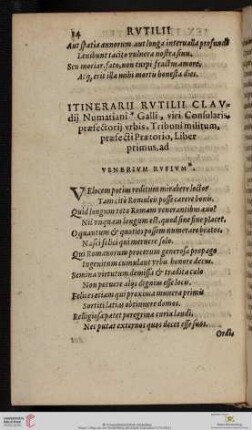 14 RVTILII
Aut spatia annorum aut longa interualla profundi
Lenibunt tacito vulnera nostra sinu.
Seu moriar, fato, non turpi fractus amore,
Aeq, erit illa mihi mortis honesta dies.
ITINERARII RVTILII CLAV
dij Numatiani Galli, viri Consularis,
præfectorij vrbis, Tribuni militum,
præfecti Prætorio, Liber
primus, ad
VENERIVM RVFIVM.
VElocem potius reditum mirabere lector
Tam citò Romuleis posse carere bonis.
Quid longum toto Romam venerantibus æuo?
Nil vnquam longum est, quod sine fine placet.
O quantum & quoties possem numerare beatos,
Nasci felici qui meruere solo.
Qui Romanorum procerum generosa propago
Ingenitum cumulant vrbis honore decus.
Semina virtutum demissa & tradita cælo
Non potuere alijs dignius esse locis.
Felices etiam qui proxima munera primis
Sortiti latias obtinuere domos.
Religiosa patet peregrinæ curia laudi.
Nec putat externos quos decet esse suos.
Ordi-